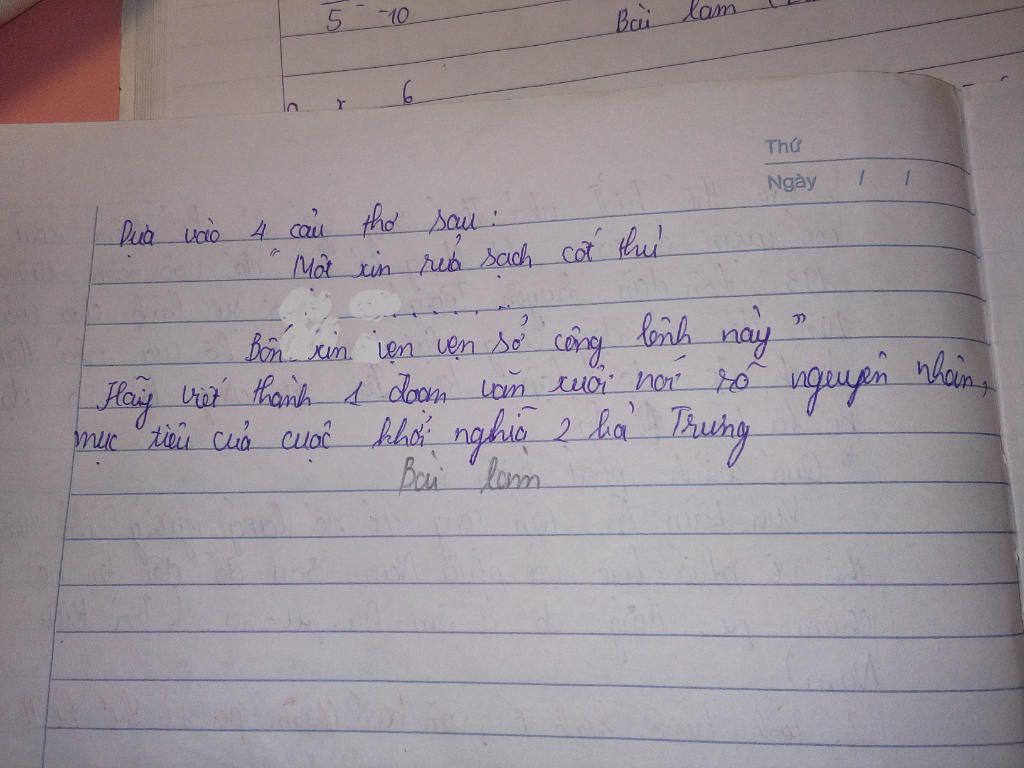 5 - -10
Bài làm
6
Thứ
Ngày / /
Dựa vào 4 câu thơ sau:
"Một xin rửa sạch cốt thù
. . . . . . .
Bốn xin vẹn vẹn sở công lênh này"
Hãy viết thành 1 đoạn văn xuôi nói rõ nguyên nhân,
mục tiêu của cuộc khởi nghĩa 2 bà Trưng
Bài làm